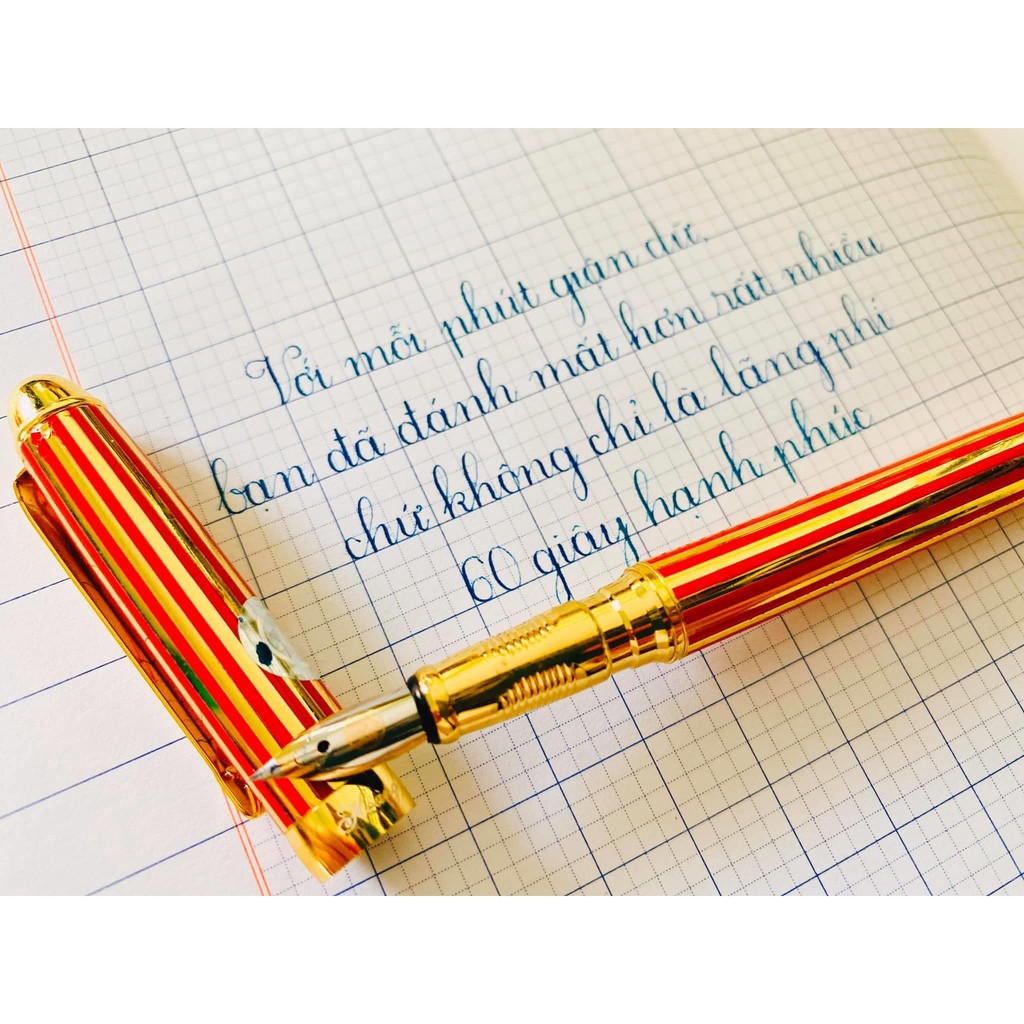 Với mỗi phút giận dữ,
bạn đã đánh mất hơn rất nhiều
chứ không chỉ là lãng phí
60 giây hạnh phúc